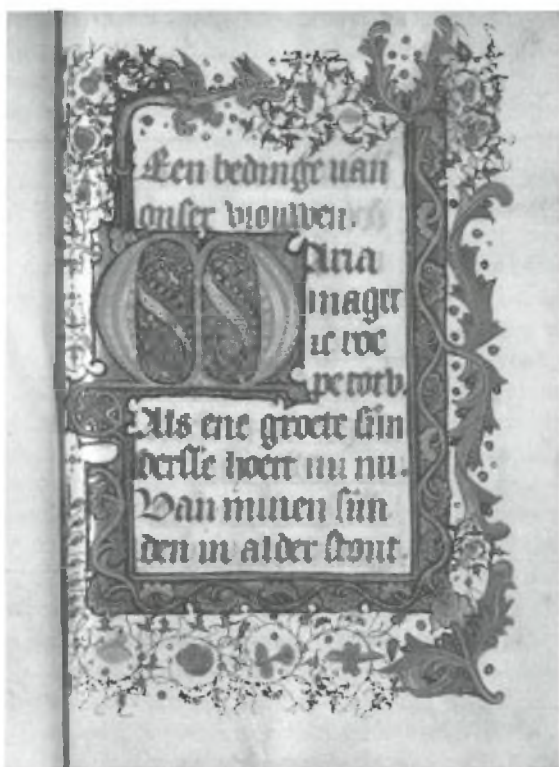 Een bedinge uan
onser vrouwen.
Maria
maget
ic roe
pe totv.
Als ene groete sun
dersse hoert mi nu.
Van minen sun
den in alder stont.